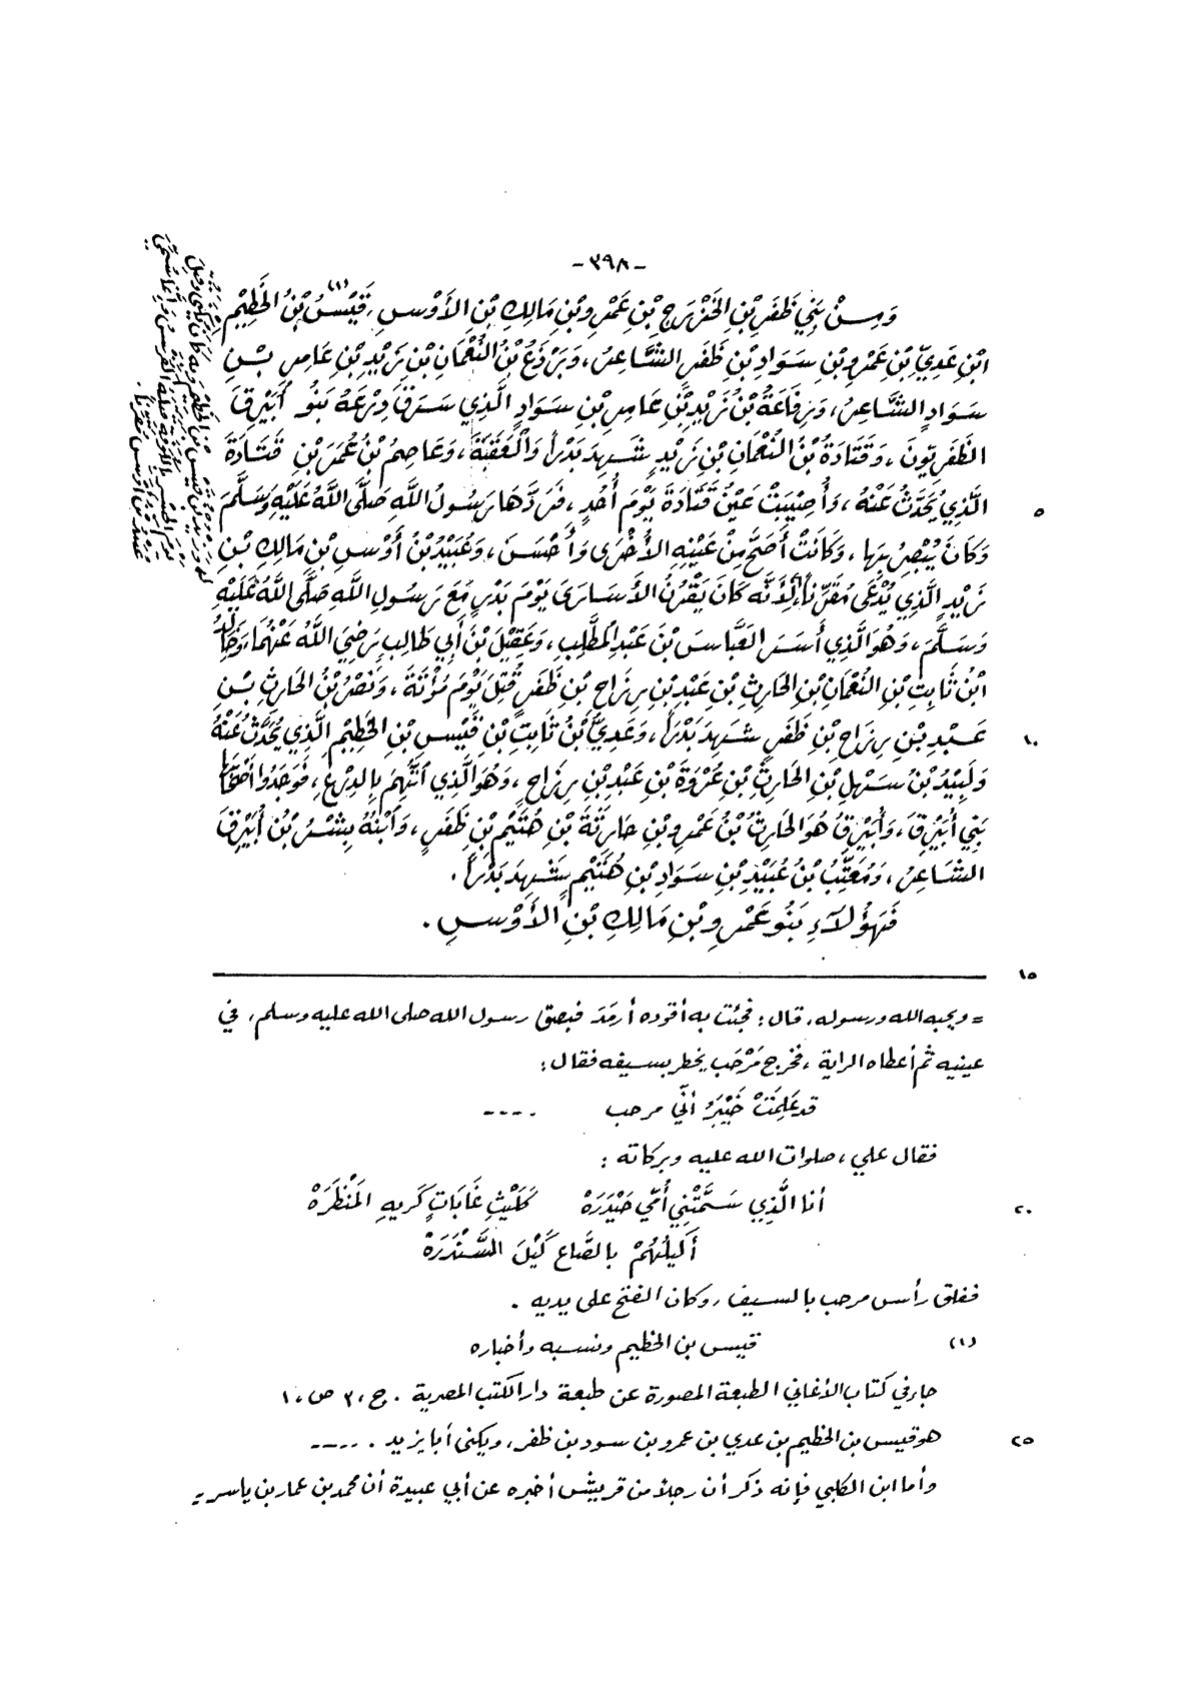 -٣٩٨-
وَمِنْ بَنِي ظَفَرِ بْنِ الخَزْرَجِ بْنِ عَمْرِو بْنِ مَالِكِ بْنِ الأَوْسِ، قَيْسُ (١) بْنُ الخَطِيْمِ
ابْنِ عَدِيِّ بْنِ عَمْرِو بْنِ سَوَادِ بْنِ ظَفَرٍ الشَّاعِرُ، وَبَرْذَعُ بْنُ النُّعْمَانِ بْنِ زَيْدِ بْنِ عَامِرِ بْنِ
سَوَادٍ الشَّاعِرُ، وَرِفَاعَةُ بْنُ زَيْدِ بْنِ عَامِرِ بْنِ سَوَادٍ الَّذِي سَرَقَ دِرْعَهُ بَنُو أُبَيْرِقَ
الظَّفَرِيّونَ، وَقَتَادَةُ بْنُ النُّعْمَانِ بْنِ زَيْدٍ شَهِدَ بَدْراً وَالْعَقَبَةَ، وَعَاصِمُ بْنُ عُمَرَ بْنِ قَتَادَةَ
الَّذِي يُحَدَّثُ عَنْهُ، وَأُصِيْبَتْ عَيْنُ قَتَادَةَ يَوْمَ أُحُدٍ، فَرَدَّهَا رَسُولُ اللَّهِ صَلَّى اللَّهُ عَلَيْهِ وَسَلَّمَ
٥
وَكَانَ يُبْصِرُ بِهَا، وَكَانَتْ أَصَحَّ مِنْ عَيْنِهِ الأُخْرَى وَأَحْسَنَ، وَعُبَيْدُ بْنُ أَوْسِ بْنِ مَالِكِ بْنِ
زَيْدٍ الَّذِي يُدْعَى مُقَرِّناً، لأَنَّه كَانَ يَقْرُنُ الأَسَارَى يَوْمَ بَدْرٍ مَعَ رَسُولِ اللَّهِ صَلَّى اللَّهُ عَلَيْهِ
وَسَلَّمَ، وَهُوَ الَّذِي أَسَرَ العَبَّاسَ بْنَ عَبْدِ المُطَّلِبِ، وَعَقِيْلَ بْنَ أَبِي طَالِبٍ رَضِيَ اللَّهُ عَنْهُمَا، وَخَالِدُ
ابْنُ ثَابِتِ بْنِ النُّعْمَانِ بْنِ الحَارِثِ بْنِ عَبْدِ بْنِ رِزَاحِ بْنِ ظَفَرٍ قُتِلَ يَوْمَ مُؤْتَةَ، وَنَصْرُ بْنُ الحَارِثِ بْنِ
عَبْدِ بْنِ رِزَاحِ بْنِ ظَفَرٍ شَهِدَ بَدْراً، وَعَدِيُّ بْنُ ثَابِتِ بْنِ قَيْسِ بْنِ الخَطِيْمِ الَّذِي يُحَدَّثُ عَنْهُ
١٠
وَلَبِيْدُ بْنُ سَهْلِ بْنِ الحَارِثِ بْنِ عُرْوَةَ بْنِ عَبْدِ بْنِ رِزَاحٍ، وَهُوَ الَّذِي اتُّهِمَ بِالدِرْعِ، فَوَجَدُوا أَصْحَابَهَا
بَنِي أُبَيْرِقَ، وَأُبَيْرِقُ هُوَ الحَارِثُ بْنُ عَمْرِو بْنِ حَارِثَةَ بْنِ هُتَيْمِ بْنِ ظَفَرٍ، وَابْنُهُ بِشْرُ بْنُ أُبَيْرِقَ
الشَاعِرُ، وَمُعَتِّبُ بْنُ عُبَيْدِ بْنِ سَوَادِ بْنِ هُتَيْمٍ شَهِدَ بَدْراً.
فَهَؤُلَاءِ بَنُو عَمْرِو بْنِ مَالِكِ بْنِ الأَوْسِ.
١٥
= ويحبه الله ورسوله، قال: فجئت به أقوده أرمَدَ فبصق رسول الله صلى الله عليه وسلم، في
عينيه ثم أعطاه الراية، فخرج مَرْحَب يخطر بسيفه فقال:
قد عَلِمَتْ خَيْبَرُ أنّي مرحب ....
فقال علي، صلوات الله عليه وبركاته:
أنا الَّذِي سَمَّتْنِي أُمّي حَيْدَرَهْ كَلَيْثِ غَابَاتٍ كَرِيهِ المَنْظَرَهْ
٢٠
أَكِيلُهُمْ بالصَّاعِ كَيْلَ السَّنْدَرَهْ
ففلق رأس مرحب بالسيف، وكان الفتح على يديه.
(١) قيس بن الخطيم ونسبه وأخباره
جاء في كتاب الأغاني الطبعة المصورة عن طبعة دار الكتب المصرية. ج، ٣ ص، ١
هو قيس بن الخطيم بن عدي بن عمرو بن سود بن ظفر، ويكنى أبا يزيد. ....
٢٥
وأما ابن الكلبي فإنه ذكر أن رجلاً من قريش أخبره عن أبي عبيدة أن محمد بن عمار بن ياسر =